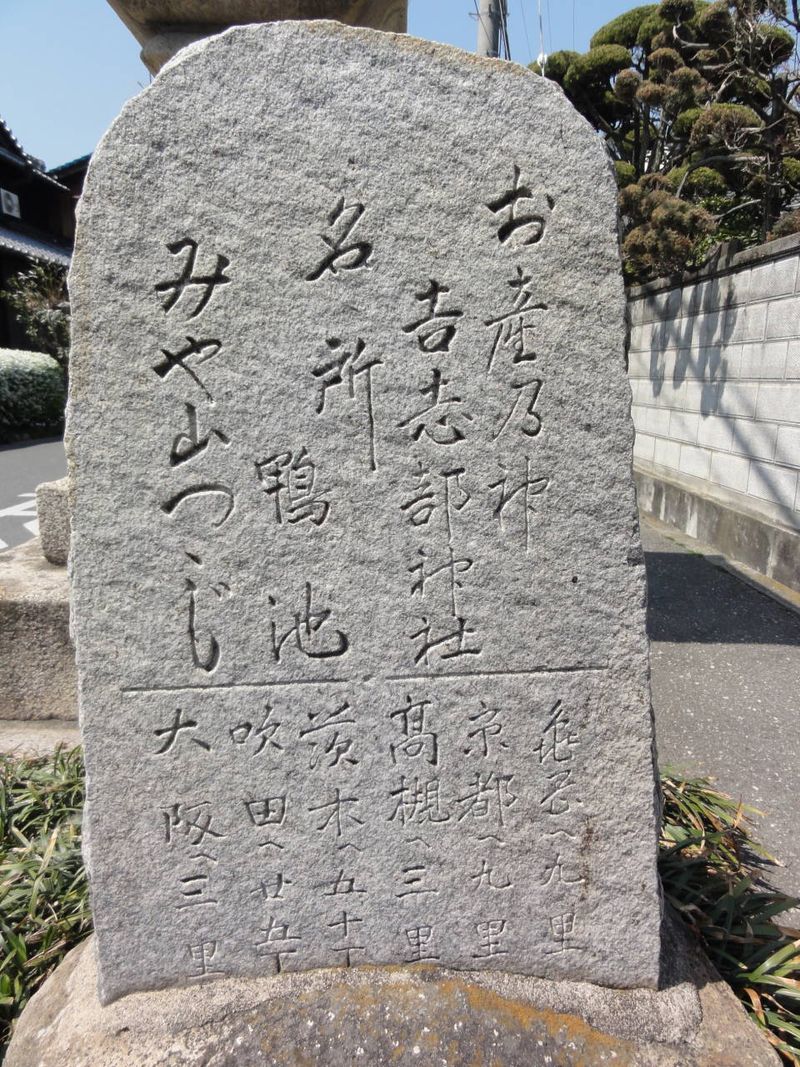 お産乃神
吉志部神社
名所
鴨池
みや山つゝじ
亀岡へ九里
京都へ九里
高槻へ三里
茨木へ五十丁
吹田へ廿五丁
大阪へ三里